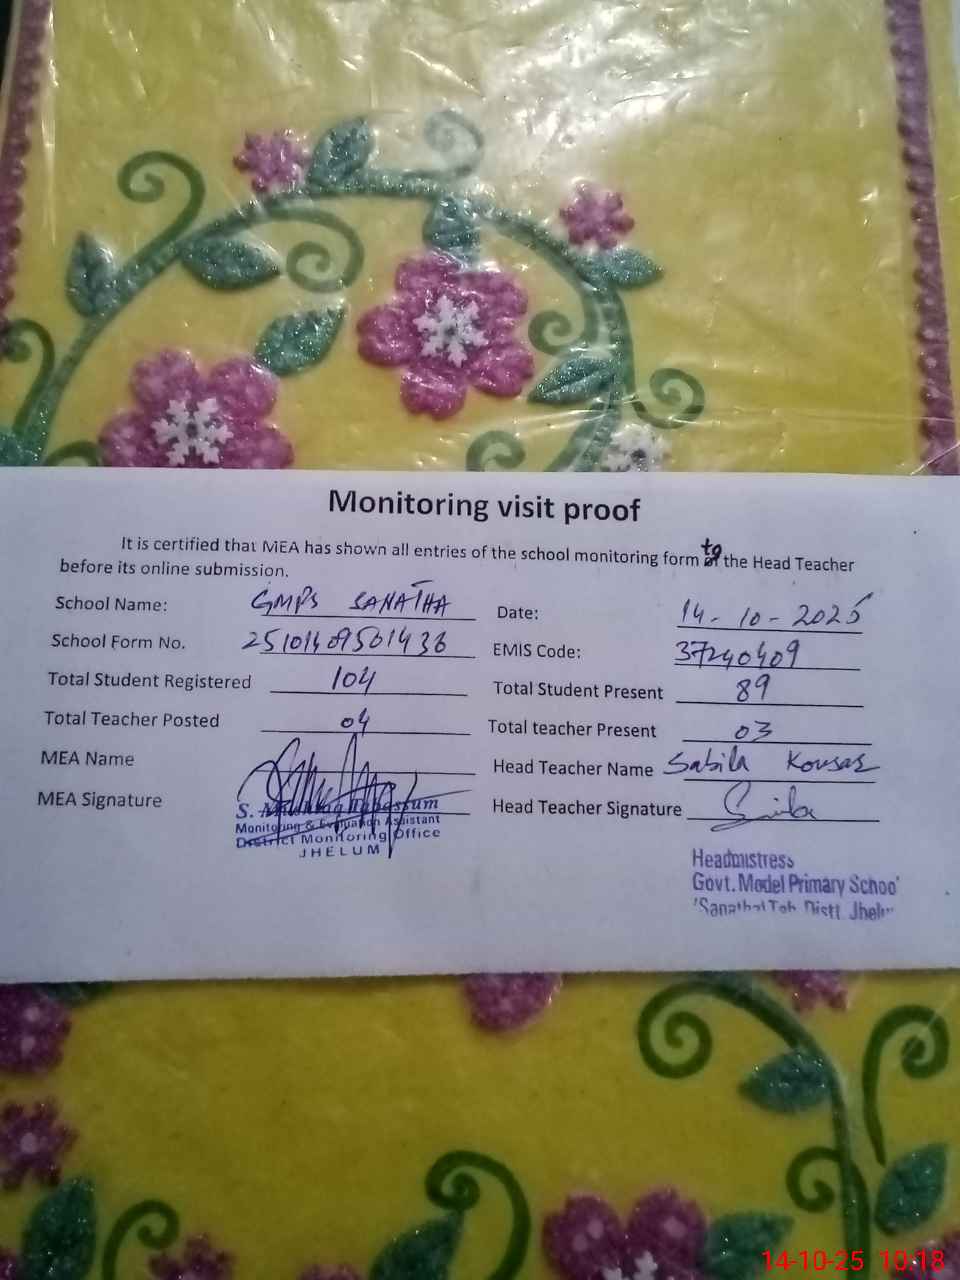 Monitoring visit proof
It is certified that MEA has shown all entries of the school monitoring form to the Head Teacher
before its online submission.
School Name: GMPS SANATHA
Date: 14-10-2025
School Form No. 25101409501436
EMIS Code: 37240409
Total Student Registered 104
Total Student Present 89
Total Teacher Posted 04
Total teacher Present 03
MEA Name
Head Teacher Name Sabila Kousar
MEA Signature
Head Teacher Signature
S. Tabassum
Monitoring & Evaluation Assistant
District Monitoring Office
JHELUM
Headmistress
Govt. Model Primary School
Sanatha Teh. Distt. Jhelum
14-10-25 10:18